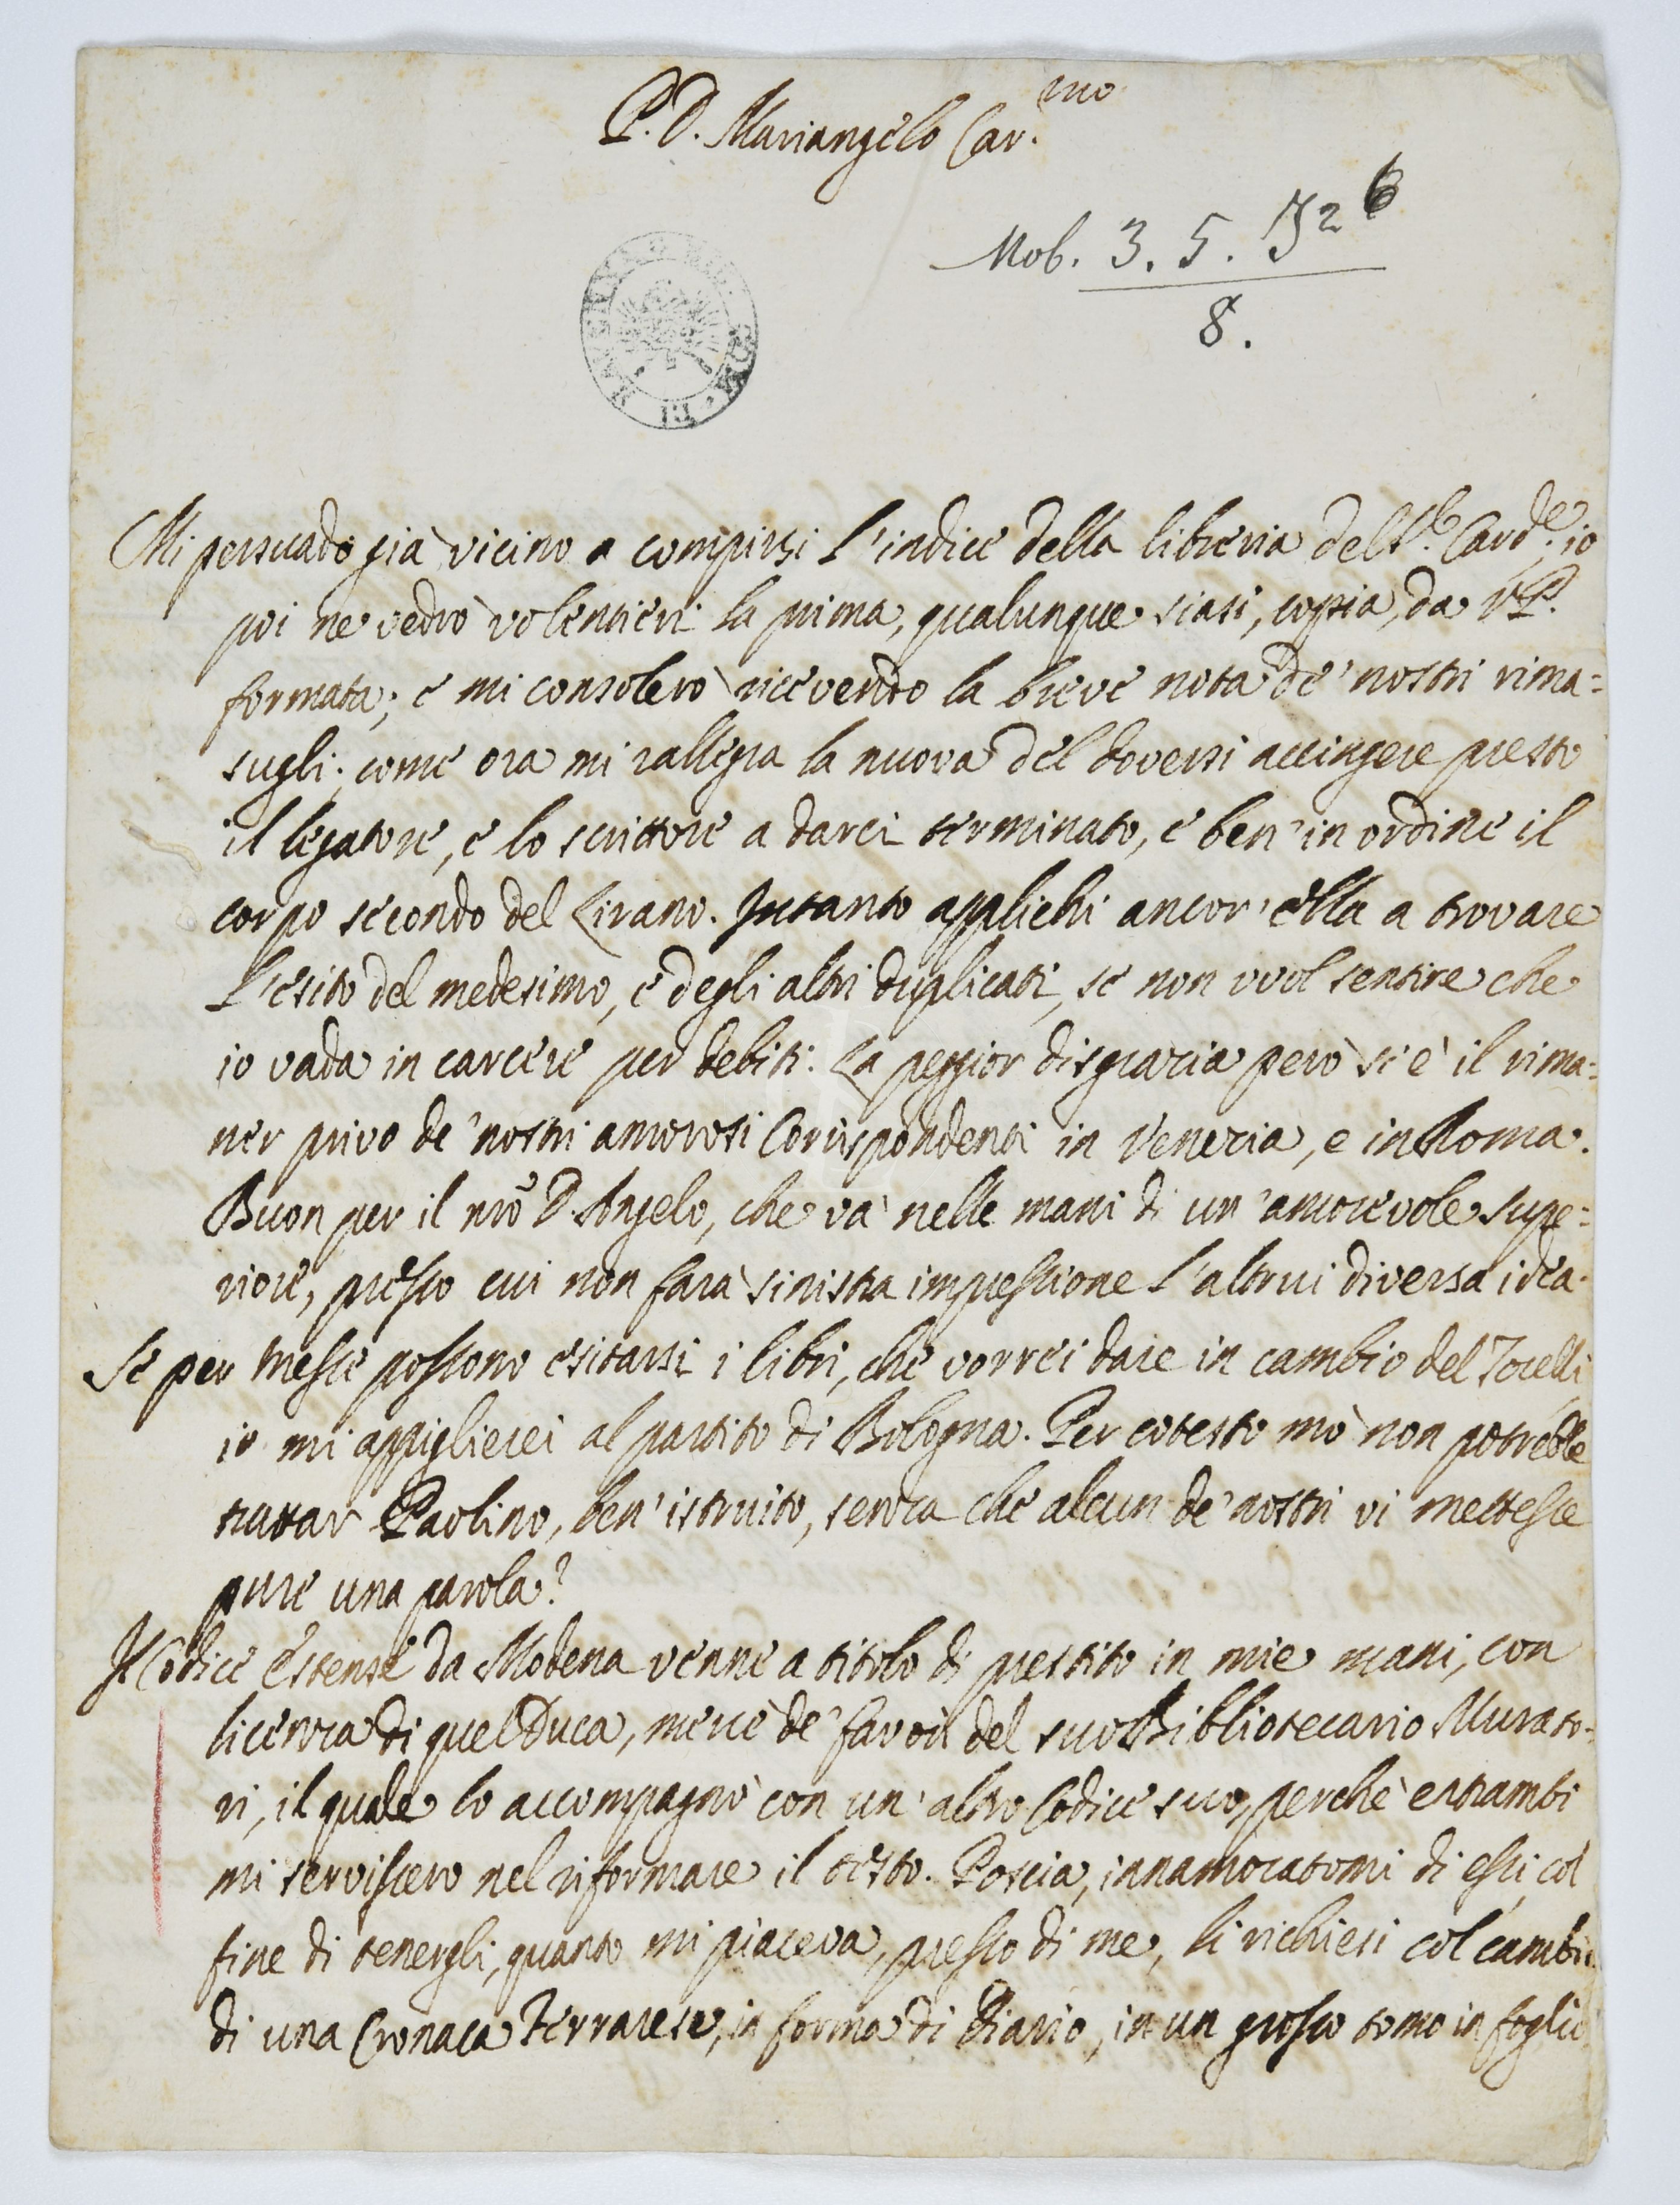 P. D. Mariangelo Car.mo
Mob. 3. 5. J2 6
8.
Mi persuado già vicino a compirsi l'indice della libreria del S.r Card.e: io
poi ne vedrò volentieri la prima, qualunque siasi, copia, da V.P.
formata; e mi consolerò ricevendo la breve nota de' nostri rima=
sugli; come ora mi rallegra la nuova del doversi accingere presto
il legatore, e lo scrittore a darci terminato, e ben' in ordine il
corpo secondo del Lirano. Intanto applichi ancor' ella a trovare
l'esito del medesimo, e degli altri duplicati, se non vuol sentire che
io vada in carcere per debiti: La peggior disgrazia però si è il rima=
ner privo de' nostri amorosi Corrispondenti in Venezia, e in Roma.
Buon per il nrõ D. Angelo, che va nelle mani di un' amorevole supe=
riore, presso cui non farà sinistra impressione l'altrui diversa idea.
Se per Messe possono esitarsi i libri, che vorrei dare in cambio del Torelli
io mi appiglierei al partito di Bologna. Per cotesto mò non potrebbe
trattar Paolino, ben' istruito, senza che alcun de' nostri vi mettesse
pure una parola?
Il Codice Estense da Modena venne a titolo di prestito in mie mani, con
licenza di quel Duca, mercè de' favori del suo Bibliotecario Murato=
ri, il quale lo accompagnò con un' altro Codice suo, perchè entrambi
mi servissero nel riformare il testo. Poscia, innamoratomi di essi, col
fine di tenergli, quanto mi piaceva, presso di me, li richiesi col cambio
di una Cronaca Ferrarese, in forma di Diario, in un grosso tomo in foglio